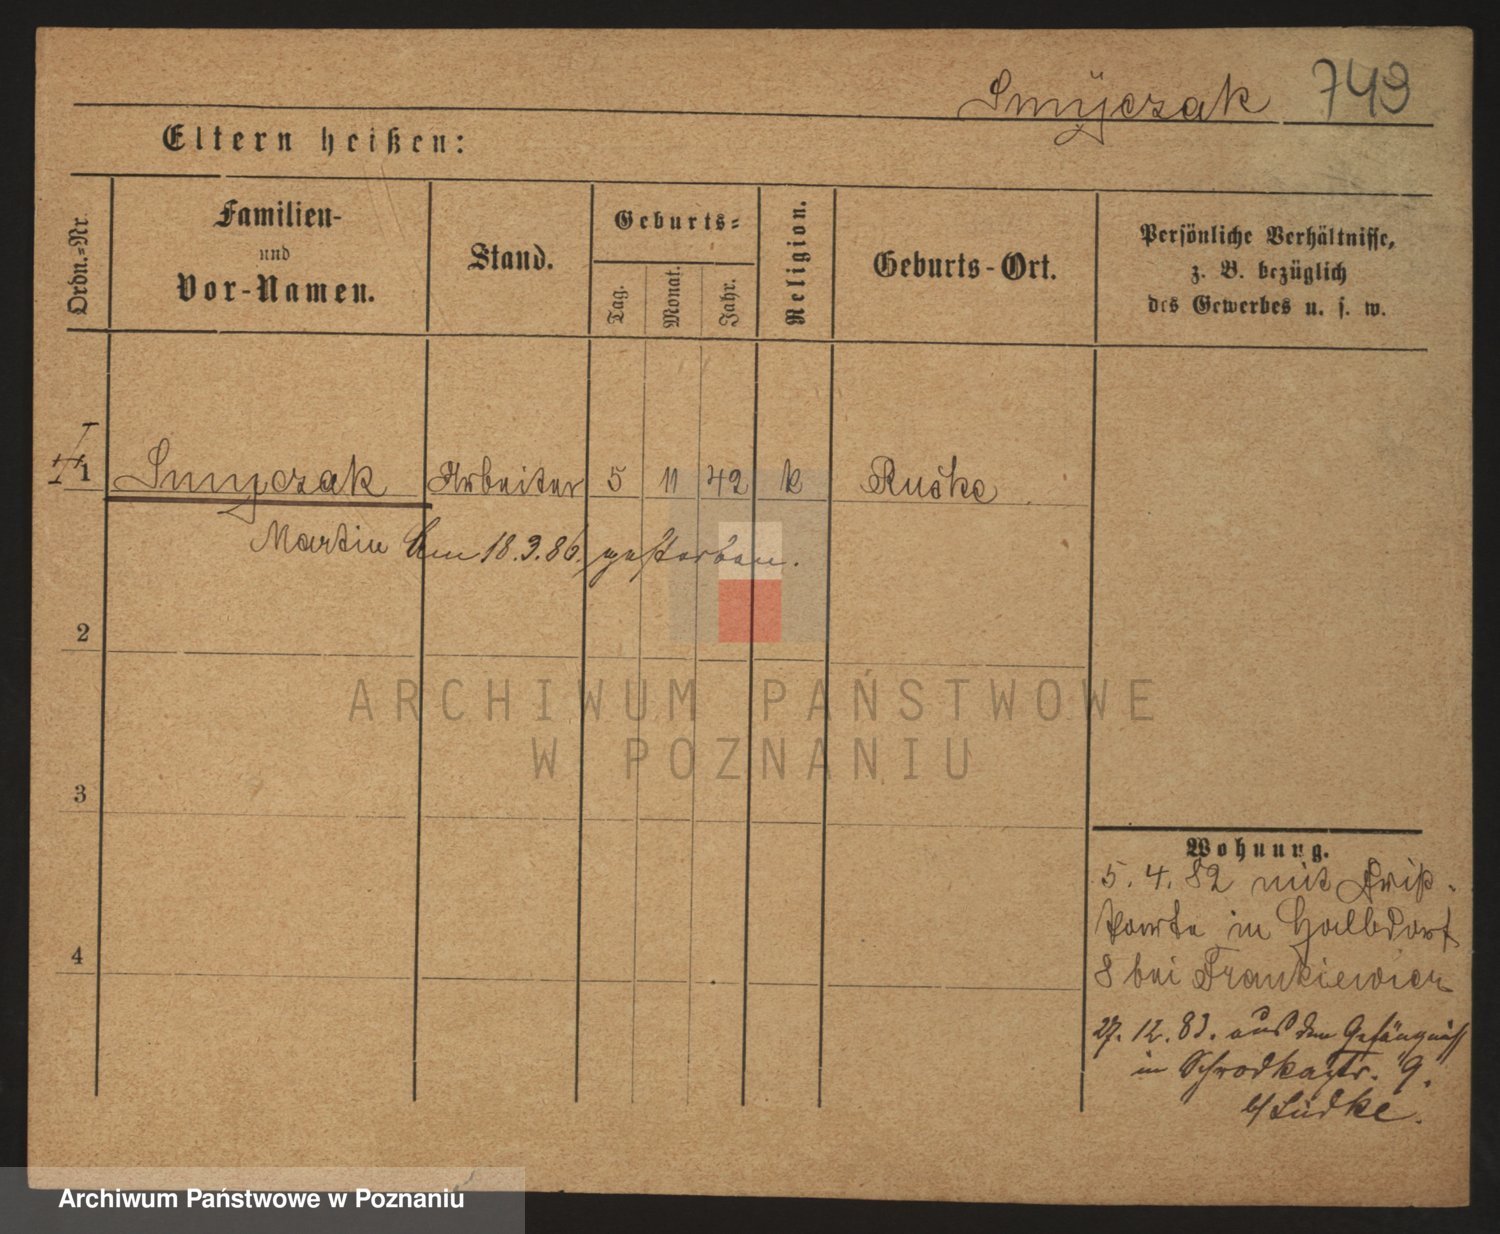 Smÿczak 749
Eltern heißen:
Ordn.-Nr.
Familien-
und
Vor-Namen.
Stand.
Geburts-
Tag.
Monat.
Jahr.
Religion.
Geburts-Ort.
Persönliche Verhältnisse,
z. B. bezüglich
des Gewerbes u. s. w.
1 Smyczak Arbeiter 5 11 42 k Ruśke
Martin Am 18.3.86. gestorben.
2
3
4
ARCHIWUM PAŃSTWOWE
W POZNANIU
Wohnung.
5.4.82 mit
karte in Halbdorf
8 bei Frankiewicz
27.12.83. aus dem Gefängniß
in Schrodkastr. 9.
b/ Lüdke.
Archiwum Państwowe w Poznaniu